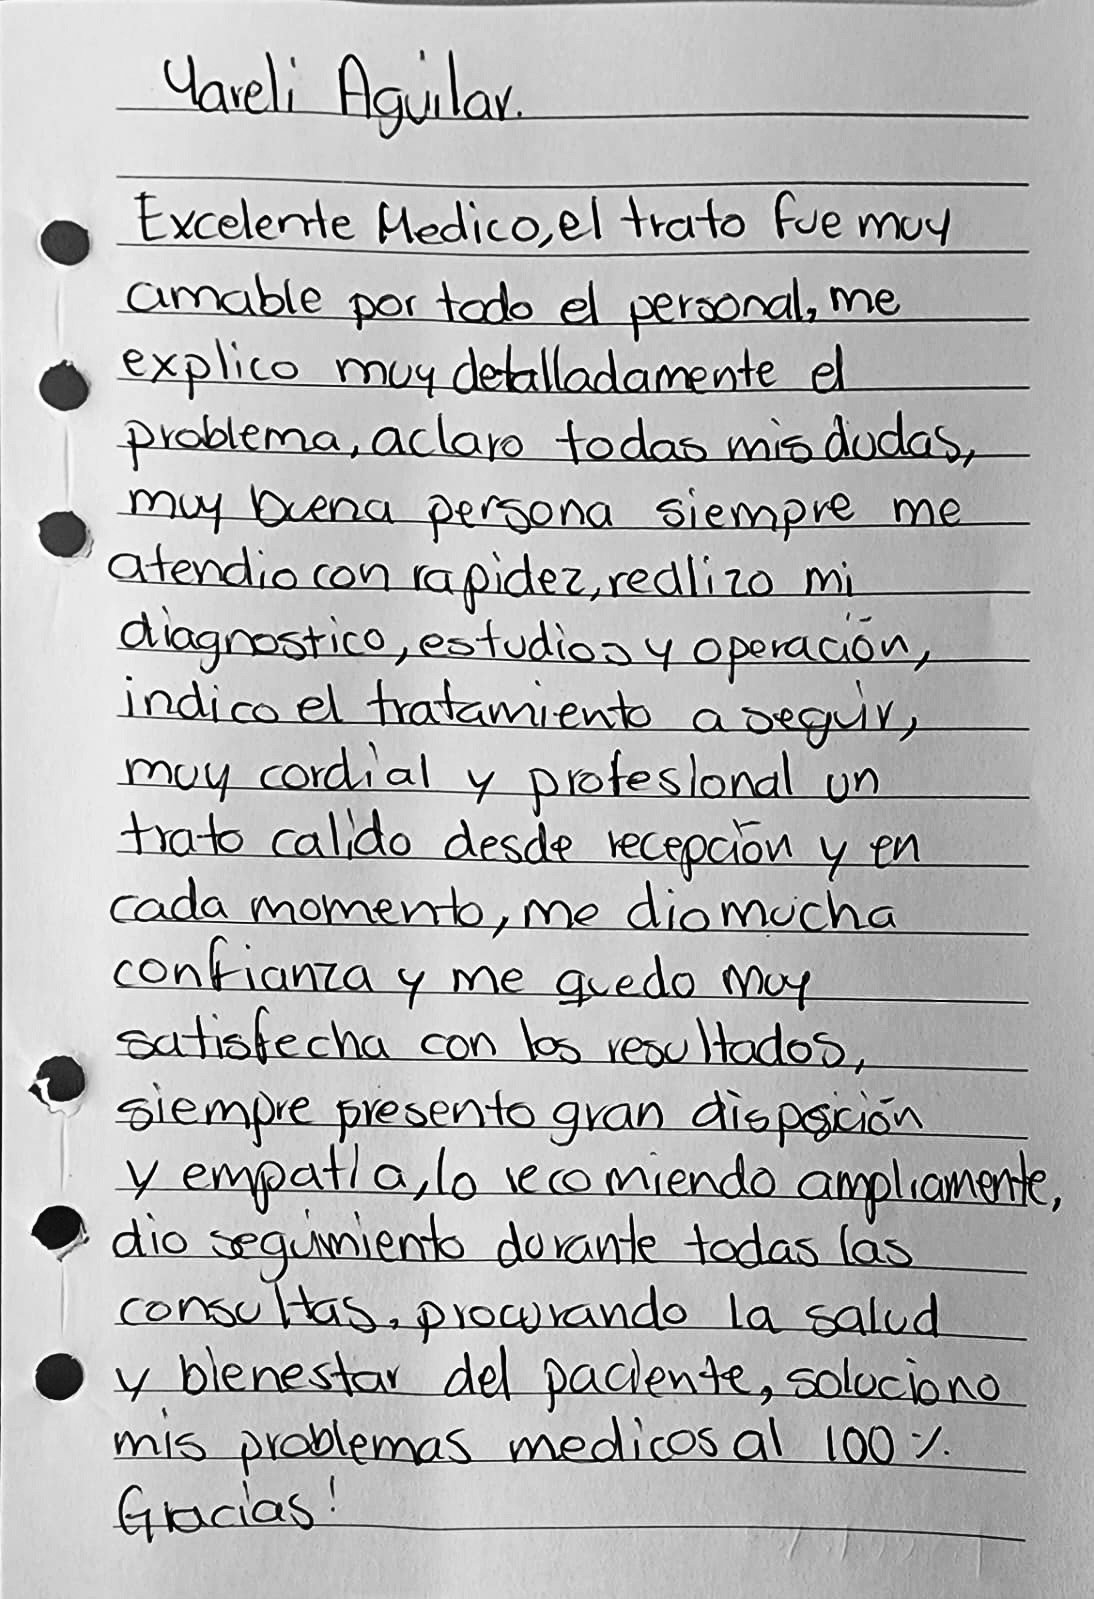 Yareli Aguilar.
Excelente Medico, el trato fue muy
amable por todo el personal, me
explico muy detalladamente el
problema, aclaro todas mis dudas,
muy buena persona siempre me
atendio con rapidez, realizo mi
diagnostico, estudios y operación,
indico el tratamiento a seguir,
muy cordial y profesional un
trato calido desde recepción y en
cada momento, me dio mucha
confianza y me quedo muy
satisfecha con los resultados,
siempre presento gran disposición
y empatia, lo recomiendo ampliamente,
dio seguimiento durante todas las
consultas, procurando la salud
y bienestar del paciente, soluciono
mis problemas medicos al 100%.
Gracias!